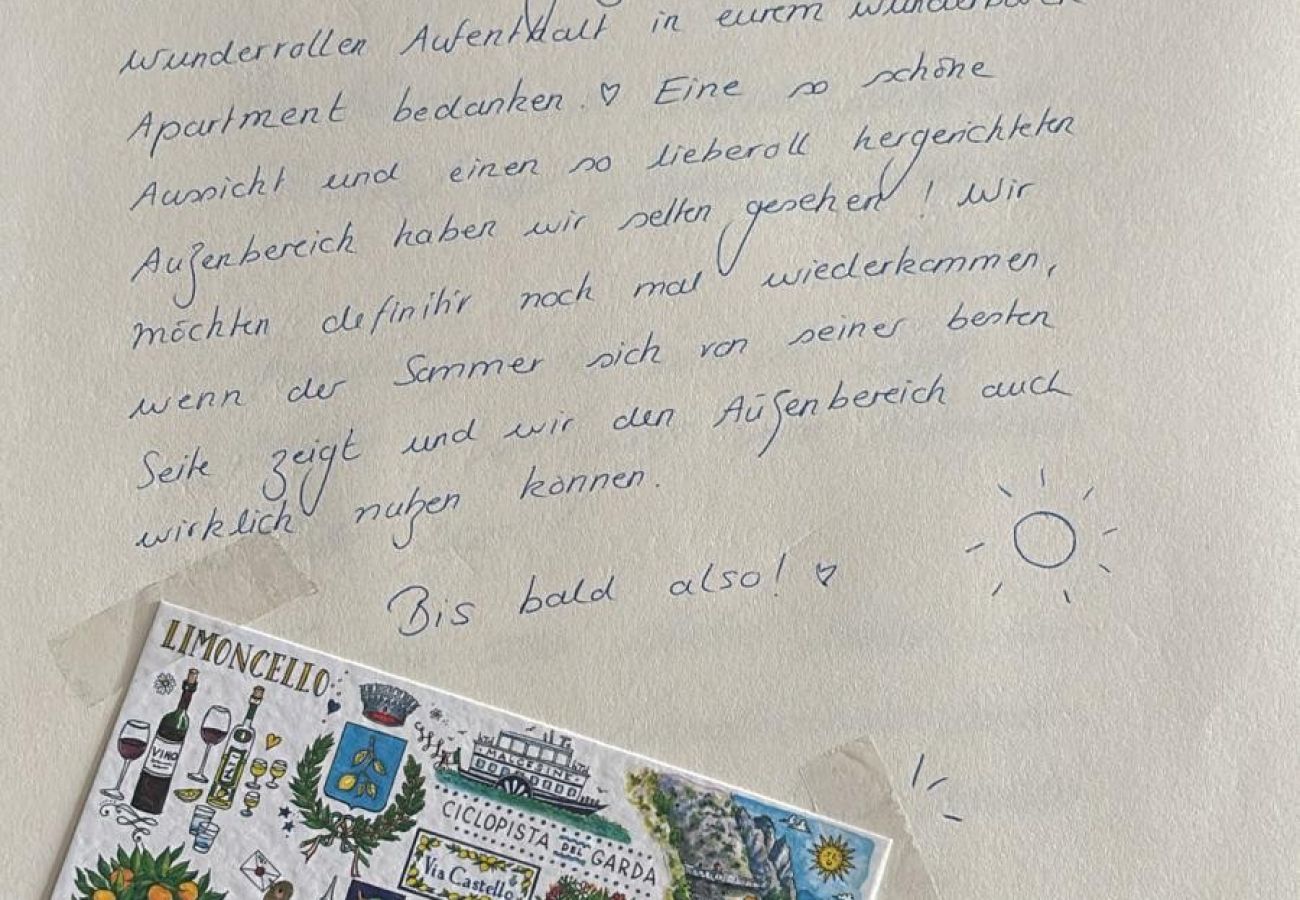 wundervollen Aufenthalt in eurem wunderbaren
Apartment bedanken. ♡ Eine so schöne
Aussicht und einen so liebevoll hergerichteten
Außenbereich haben wir selten gesehen! Wir
möchten definitiv noch mal wiederkommen,
wenn der Sommer sich von seiner besten
Seite zeigt und wir den Außenbereich auch
wirklich nutzen können.
Bis bald also! ♡
LIMONCELLO
VINO
MALCESINE
CICLOPISTA DEL GARDA
Via Castello